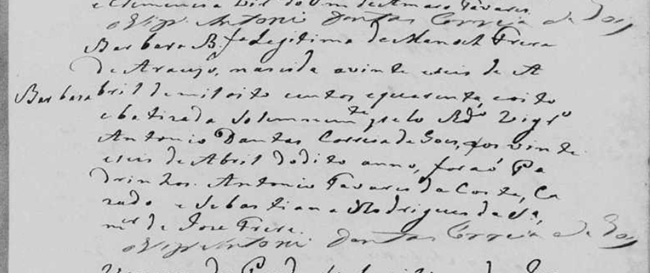 e Clemencia Dil do Om de Amaro Tavares
o Vigr.º Antonio Dantas Correia de Goes
Barbara B. fª Legitima de Manoel Frera
de Araujo, nascida a vinte e seis de A
Barbara
bril de mil oito centos e quarenta, e oito
e batizada solemnem.te pelo Rd.º Vigr.º
Antonio Dantas Correia de Goes, aos vinte
e seis de Abril do dito anno, foraõ Pa
drinhos. Antonio Tavares da Costa, Ca
zado e Sebastiana Rodrigues da Sª,
m.er de Jose Frere.
o Vigr.º Antonio Dantas Correia de Goes